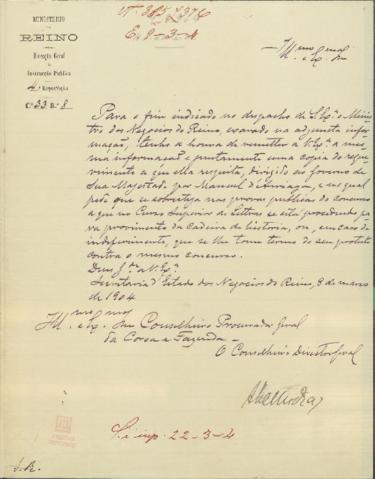 MINISTERIO
DO
REINO
Direcção Geral
de
Instrucção Publica
4.ª Repartição
N.º 33 B.º 8
Nº 385 L 37 G
E. 9-3-4
Ill.mo e Ex.mo Snr.
Para o fim indicado no despacho de S. Ex.ª o Minis-
tro dos Negocios do Reino, exarado na adjuncta infor-
mação, tenho a honra de remetter a V. Ex.ª a mes-
ma informação e juntamente uma copia do reque-
rimento a que ella respeita, dirigido ao Governo de
Sua Magestade por Manuel d', no qual
pede que se nas provas publicas do concurso
a que no Curso Superior de Lettras se está procedendo pa-
ra provimento da cadeira de historia, ou, em caso de
indeferimento, que se lhe tome termo do seu protesto
contra o mesmo concurso.
Deus G.e a V. Ex.ª
Secretaria d'Estado dos Negocios do Reino, 8 de março
de 1904
Ill.mo e Ex.mo Snr. Conselheiro Procurador Geral
da Coroa e Fazenda
O Conselheiro Director Geral
22-3-4